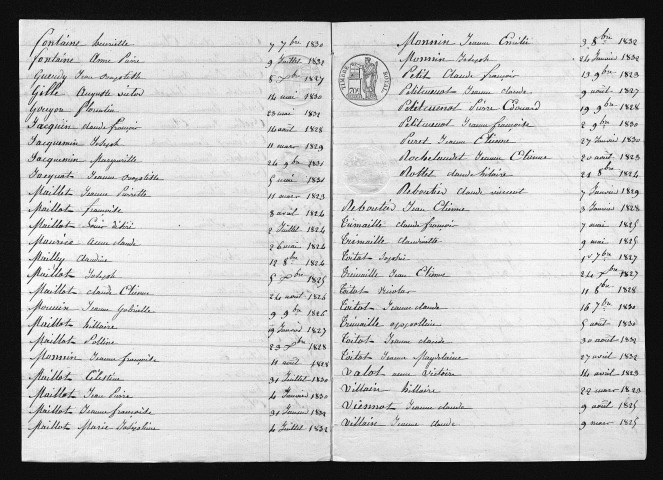 Fontaine henriette 7 7bre 1830
fontaine Anne Pierre 9 Juillet 1831
Guerdy Jean Baptiste 1827
Gette Auguste victor 14 mai 1830
Gouyon florentin 23 mai 1831
Jacquin claude françois 14 août 1828
Jacquemin Joseph 11 mars 1829
Jacquemin Marguerite 24 9bre 1831
Jacquot Jeanne Baptiste 5 mai 1831
Maillot Jeanne Pierrette 11 mars 1823
Maillot françoise 8 avril 1824
Maillot Louis désiré 2 Juillet 1824
Maurice anne claude 26 mai 1824
Mailly claudine 12 8bre 1824
Maillot Joseph 5 1825
Maillot claude Etienne 24 août 1826
Monnin Jeanne Gabrielle 9 9bre 1826
Maillot hillaire 19 Janvier 1827
Maillot 23 1828
Monnin Jeanne françoise 11 août 1828
Maillot Célestine 31 Juillet 1830
Maillot Jean Pierre 4 Janvier 1830
Maillot Jeanne françoise 31 Janvier 1832
Maillot Marie Joséphine 4 Juillet 1832
Monnin Jeanne Emélie 3 8bre 1832
Monnin Joseph 24 Janvier 1832
TIMBRE ROYAL
Petit Claude françois 13 9bre 1823
Petitcuenot Jeanne claude 9 août 1827
Petitcuenot Pierre Edouard 19 9bre 1828
Petitcuenot Jeanne françoise 2 9bre 1830
Puret Jeanne Etienne 27 Janvier 1830
Rochelandet Jeanne Etienne 20 août 1823
Rollet claude hilaire 21 8bre 1824
Reboutier claude vincent 7 Janvier 1829
Reboutier Jean Etienne 3 Janvier 1828
Trimaille claude françois 7 mai 1825
Trimaille claudinette 9 mai 1825
Titot 1er 7bre 1827
Trimaille Jean Etienne 24 1827
Titot 11 8bre 1828
Titot Jeanne claude 16 7bre 1830
Trimaille 5 août 1830
Titot Jeanne claude 30 août 1832
Titot Jeanne Magdelaine 27 avril 1832
Valot anne victoire 14 avril 1823
Villain hillaire 22 mars 1823
Viennot Jeanne claude 9 août 1825
Villain Jeanne claude 9 mars 1825